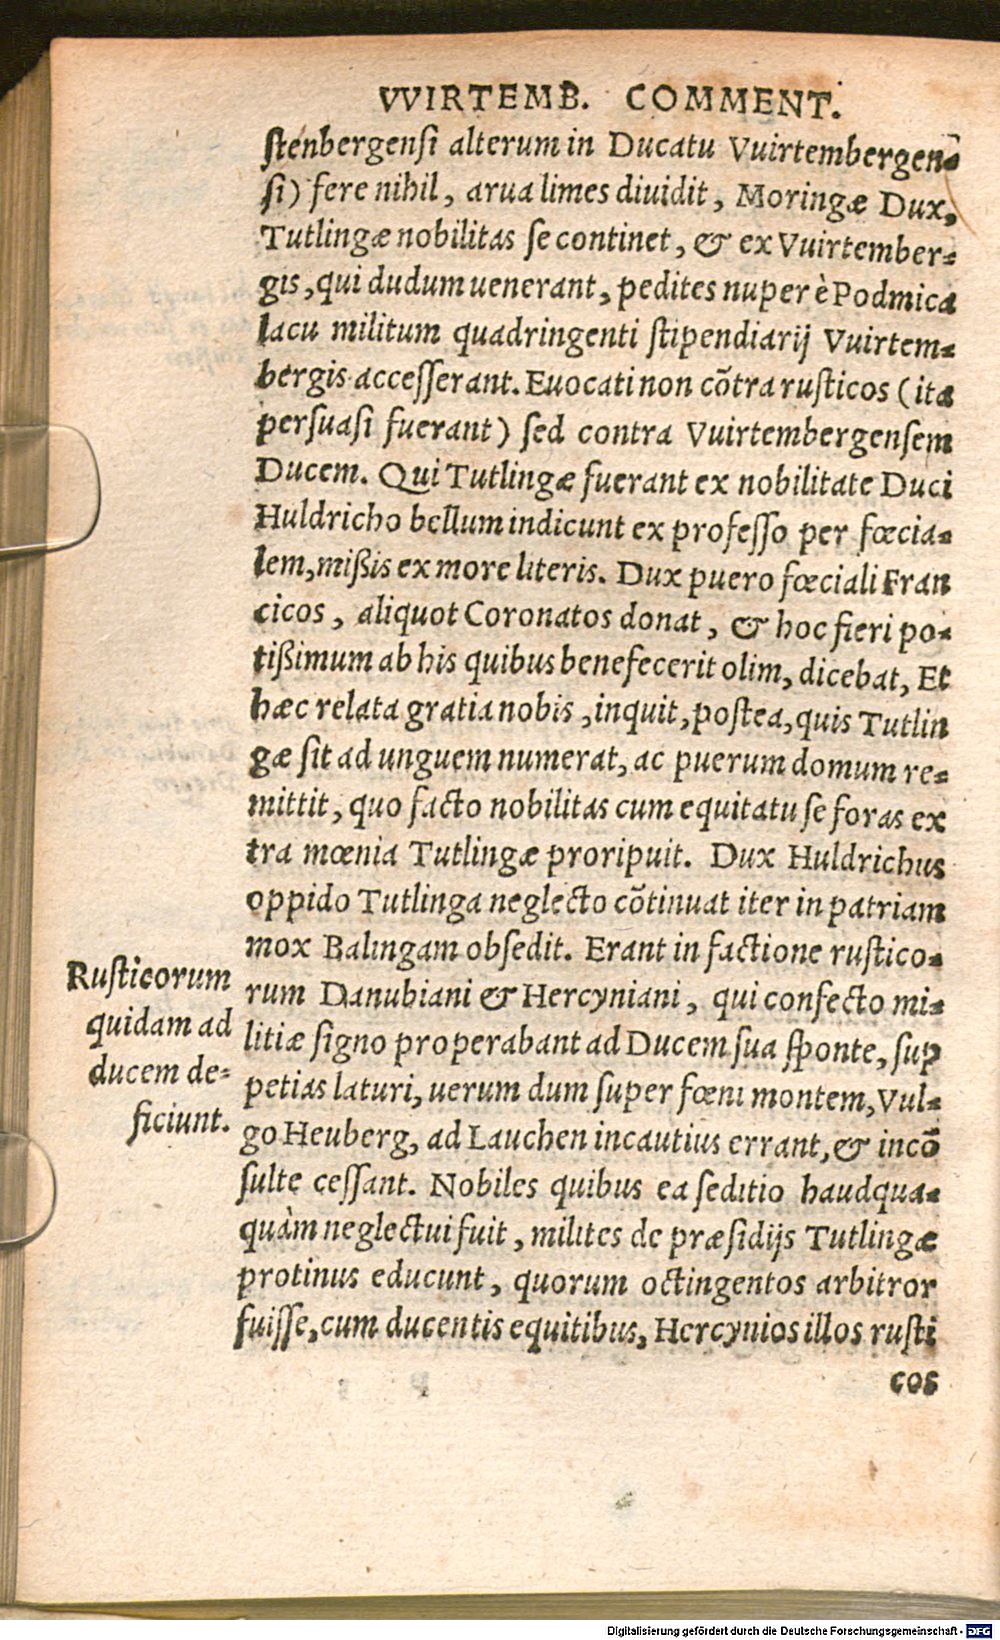 VVIRTEMB. COMMENT.
stenbergensi alterum in Ducatu Vuirtembergen-
si) fere nihil, arua limes diuidit, Moringæ Dux,
Tutlingæ nobilitas se continet, & ex Vuirtember-
gis, qui dudum uenerant, pedites nuper è Podmica
lacu militum quadringenti stipendiarij Vuirtem-
bergis accesserant. Euocati non cõtra rusticos (ita
persuasi fuerant) sed contra Vuirtembergensem
Ducem. Qui Tutlingæ fuerant ex nobilitate Duci
Huldricho bellum indicunt ex professo per fœcia-
lem, mißis ex more literis. Dux puero fœciali Fran
cicos, aliquot Coronatos donat, & hoc fieri po-
tißimum ab his quibus benefecerit olim, dicebat, Et
hæc relata gratia nobis, inquit, postea, quis Tutlin
gæ sit ad unguem numerat, ac puerum domum re-
mittit, quo facto nobilitas cum equitatu se foras ex
tra mœnia Tutlingæ proripuit. Dux Huldrichus
oppido Tutlinga neglecto cõtinuat iter in patriam
mox Balingam obsedit. Erant in factione rustico-
rum Danubiani & Hercyniani, qui confecto mi-
litiæ signo properabant ad Ducem sua sponte, sup
petias laturi, uerum dum super fœni montem, Vul-
go Heuberg, ad Lauchen incautius errant, & incõ
sulte cessant. Nobiles quibus ea seditio haudqua-
quàm neglectui fuit, milites de præsidijs Tutlingæ
protinus educunt, quorum octingentos arbitror
fuisse, cum ducentis equitibus, Hercynios illos rusti
cos
Rusticorum
quidam ad
ducem de-
ficiunt.
Digitalisierung gefördert durch die Deutsche Forschungsgemeinschaft - DFG